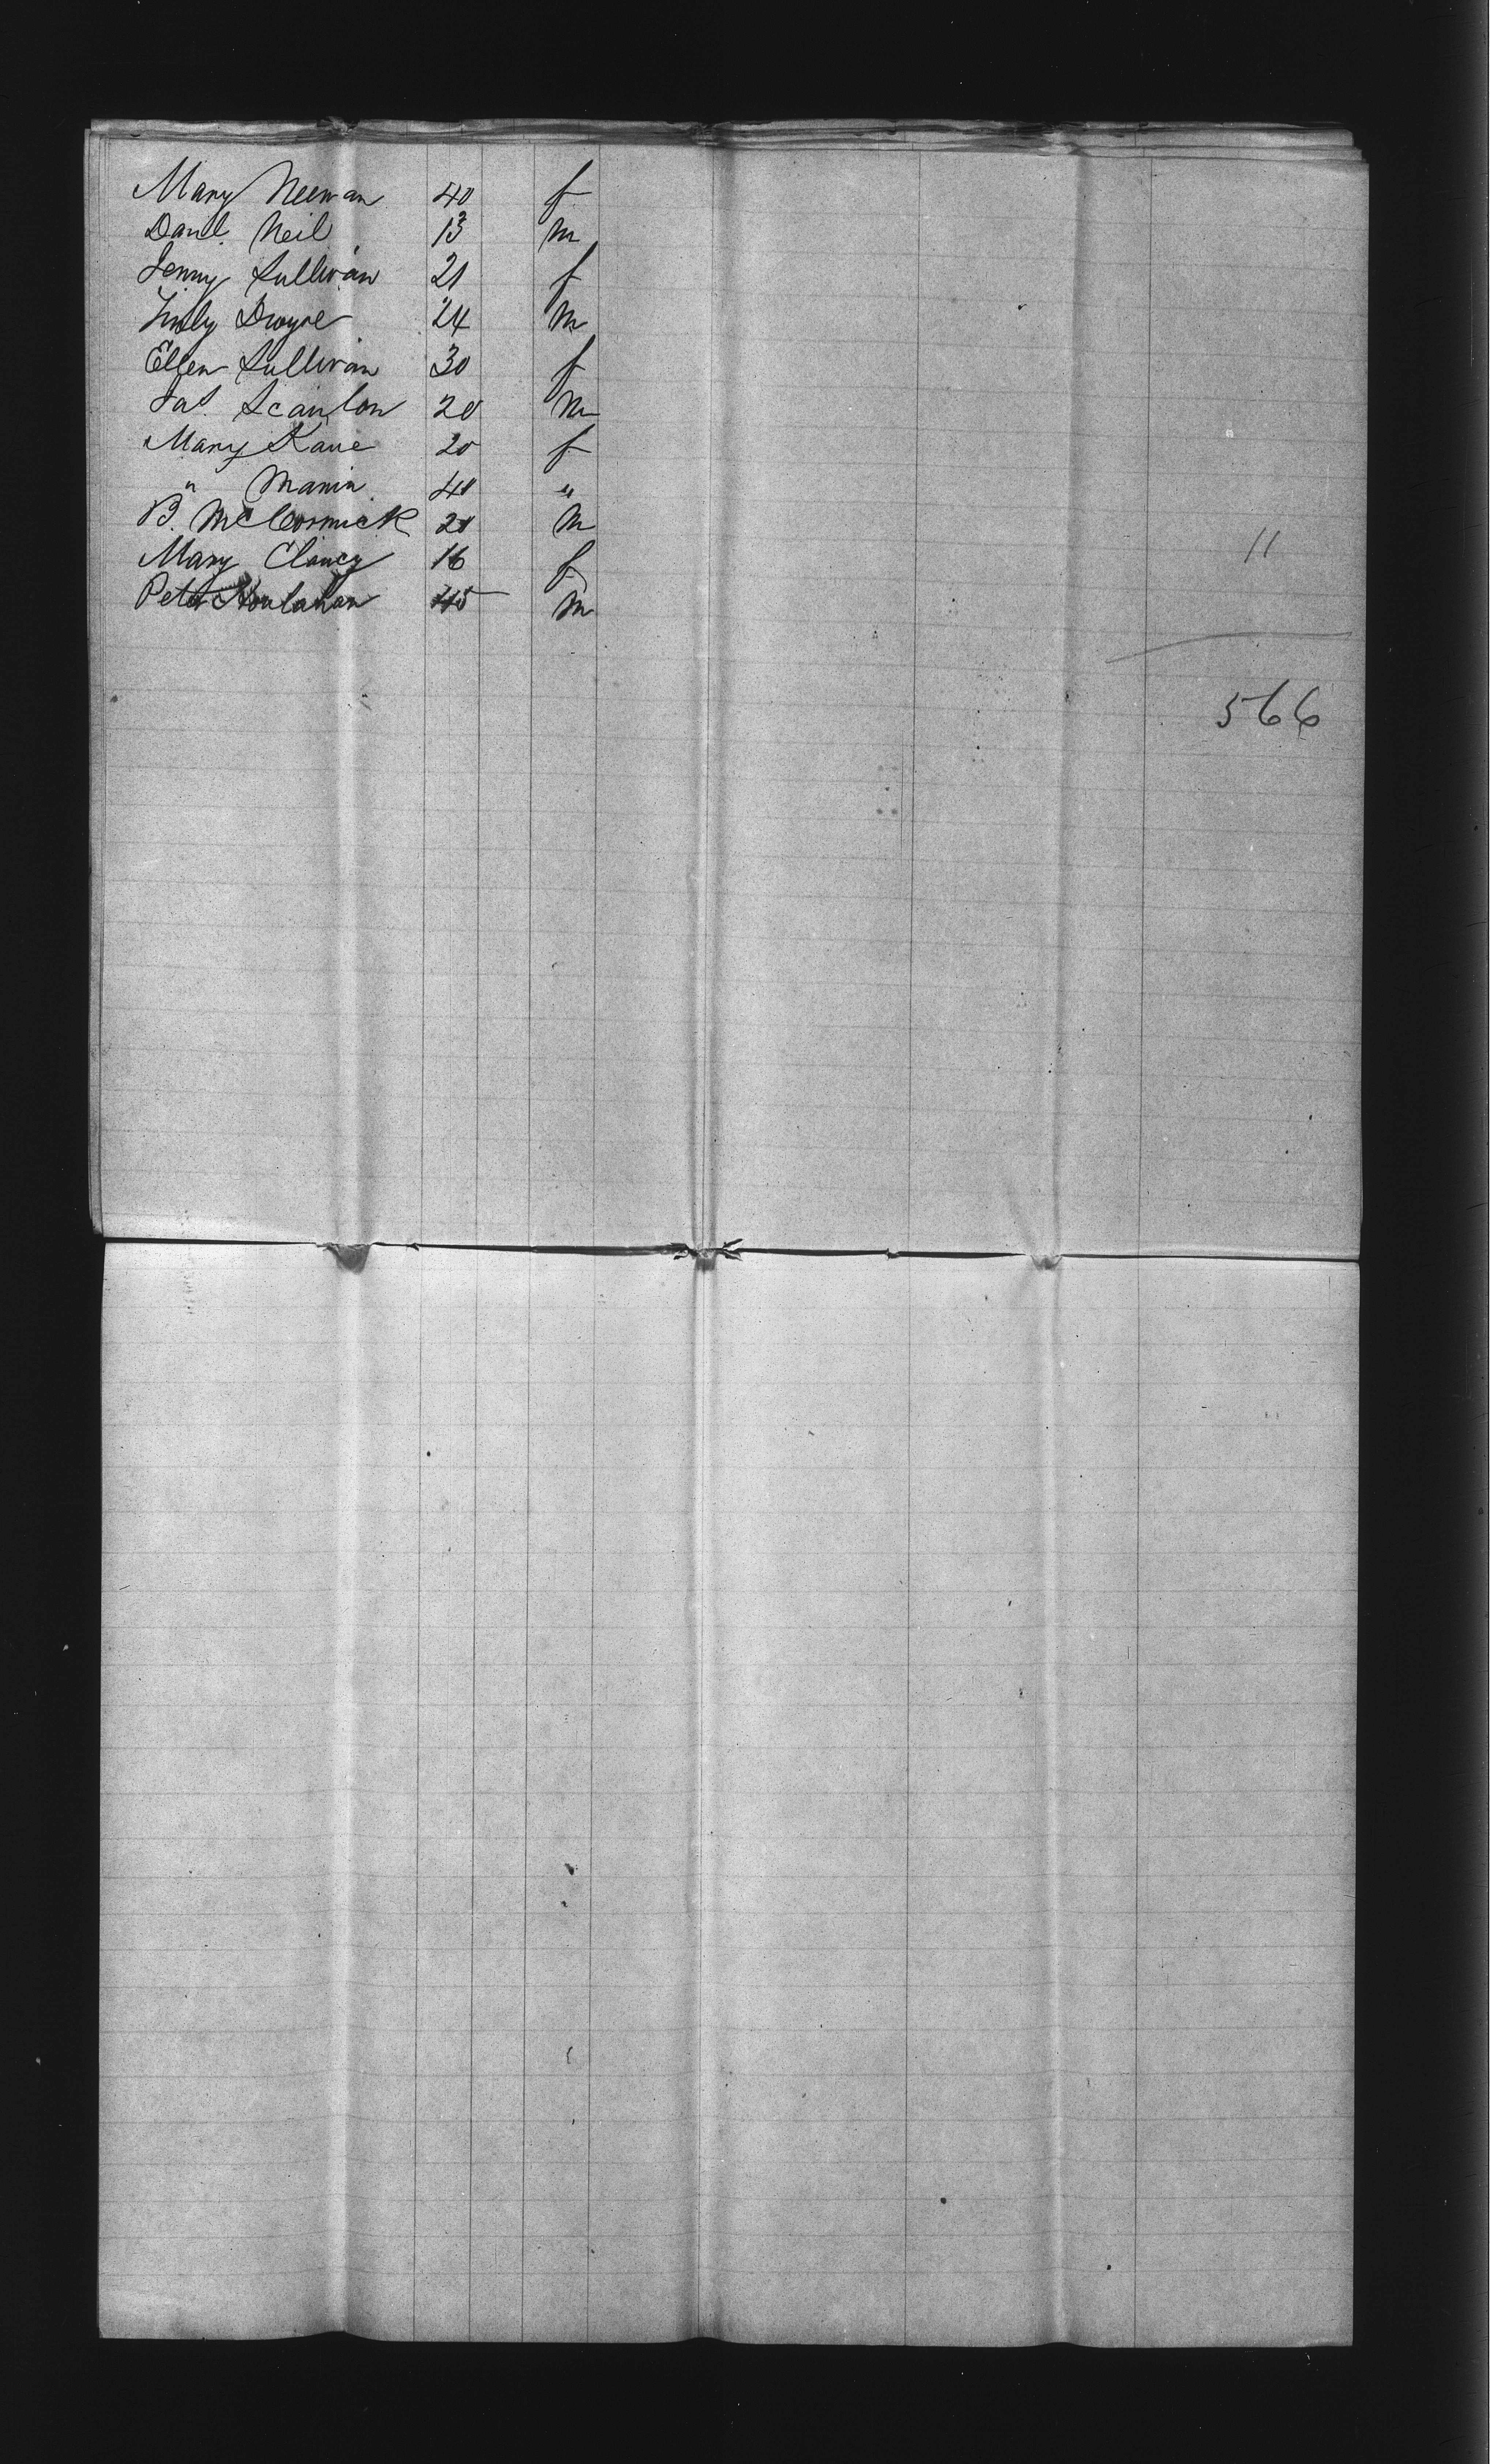 Mary Neenan 40 f
Danl. Neil 13 m
Jenny Sullivan 21 f
Dwyre 24 m
Ellen Sullivan 30 f
Jas. Scanlon 20 m
Mary Kane 20 f
" 40 "
B. McCormick 20 m
Mary Clancy 16 f
Peter Houlahan 45 m
11
566